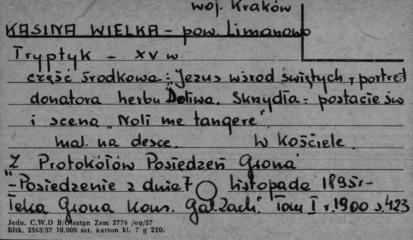 woj. Kraków
KASINA WIELKA - pow. Limanowo
Tryptyk - XV w
część środkowa: "Jezus wśród świętych, portret
donatora herbu "Doliwa. Skrzydła: postacie św
i scena "Noli me tangere"
mal. na desce. W Kościele.
Z Protokółów Posiedzeń Grona
"-Posiedzenie z dnia 7 listopada 1895r-
Teka Grona Kons. Gal. Zach." Tom I r. 1900 s. 423
Jedn. C.W.D B/Olsztyn Zam 2776 /on/57
Bltk. 2563/57 10.000 szt. karton kl. 7 g 220.